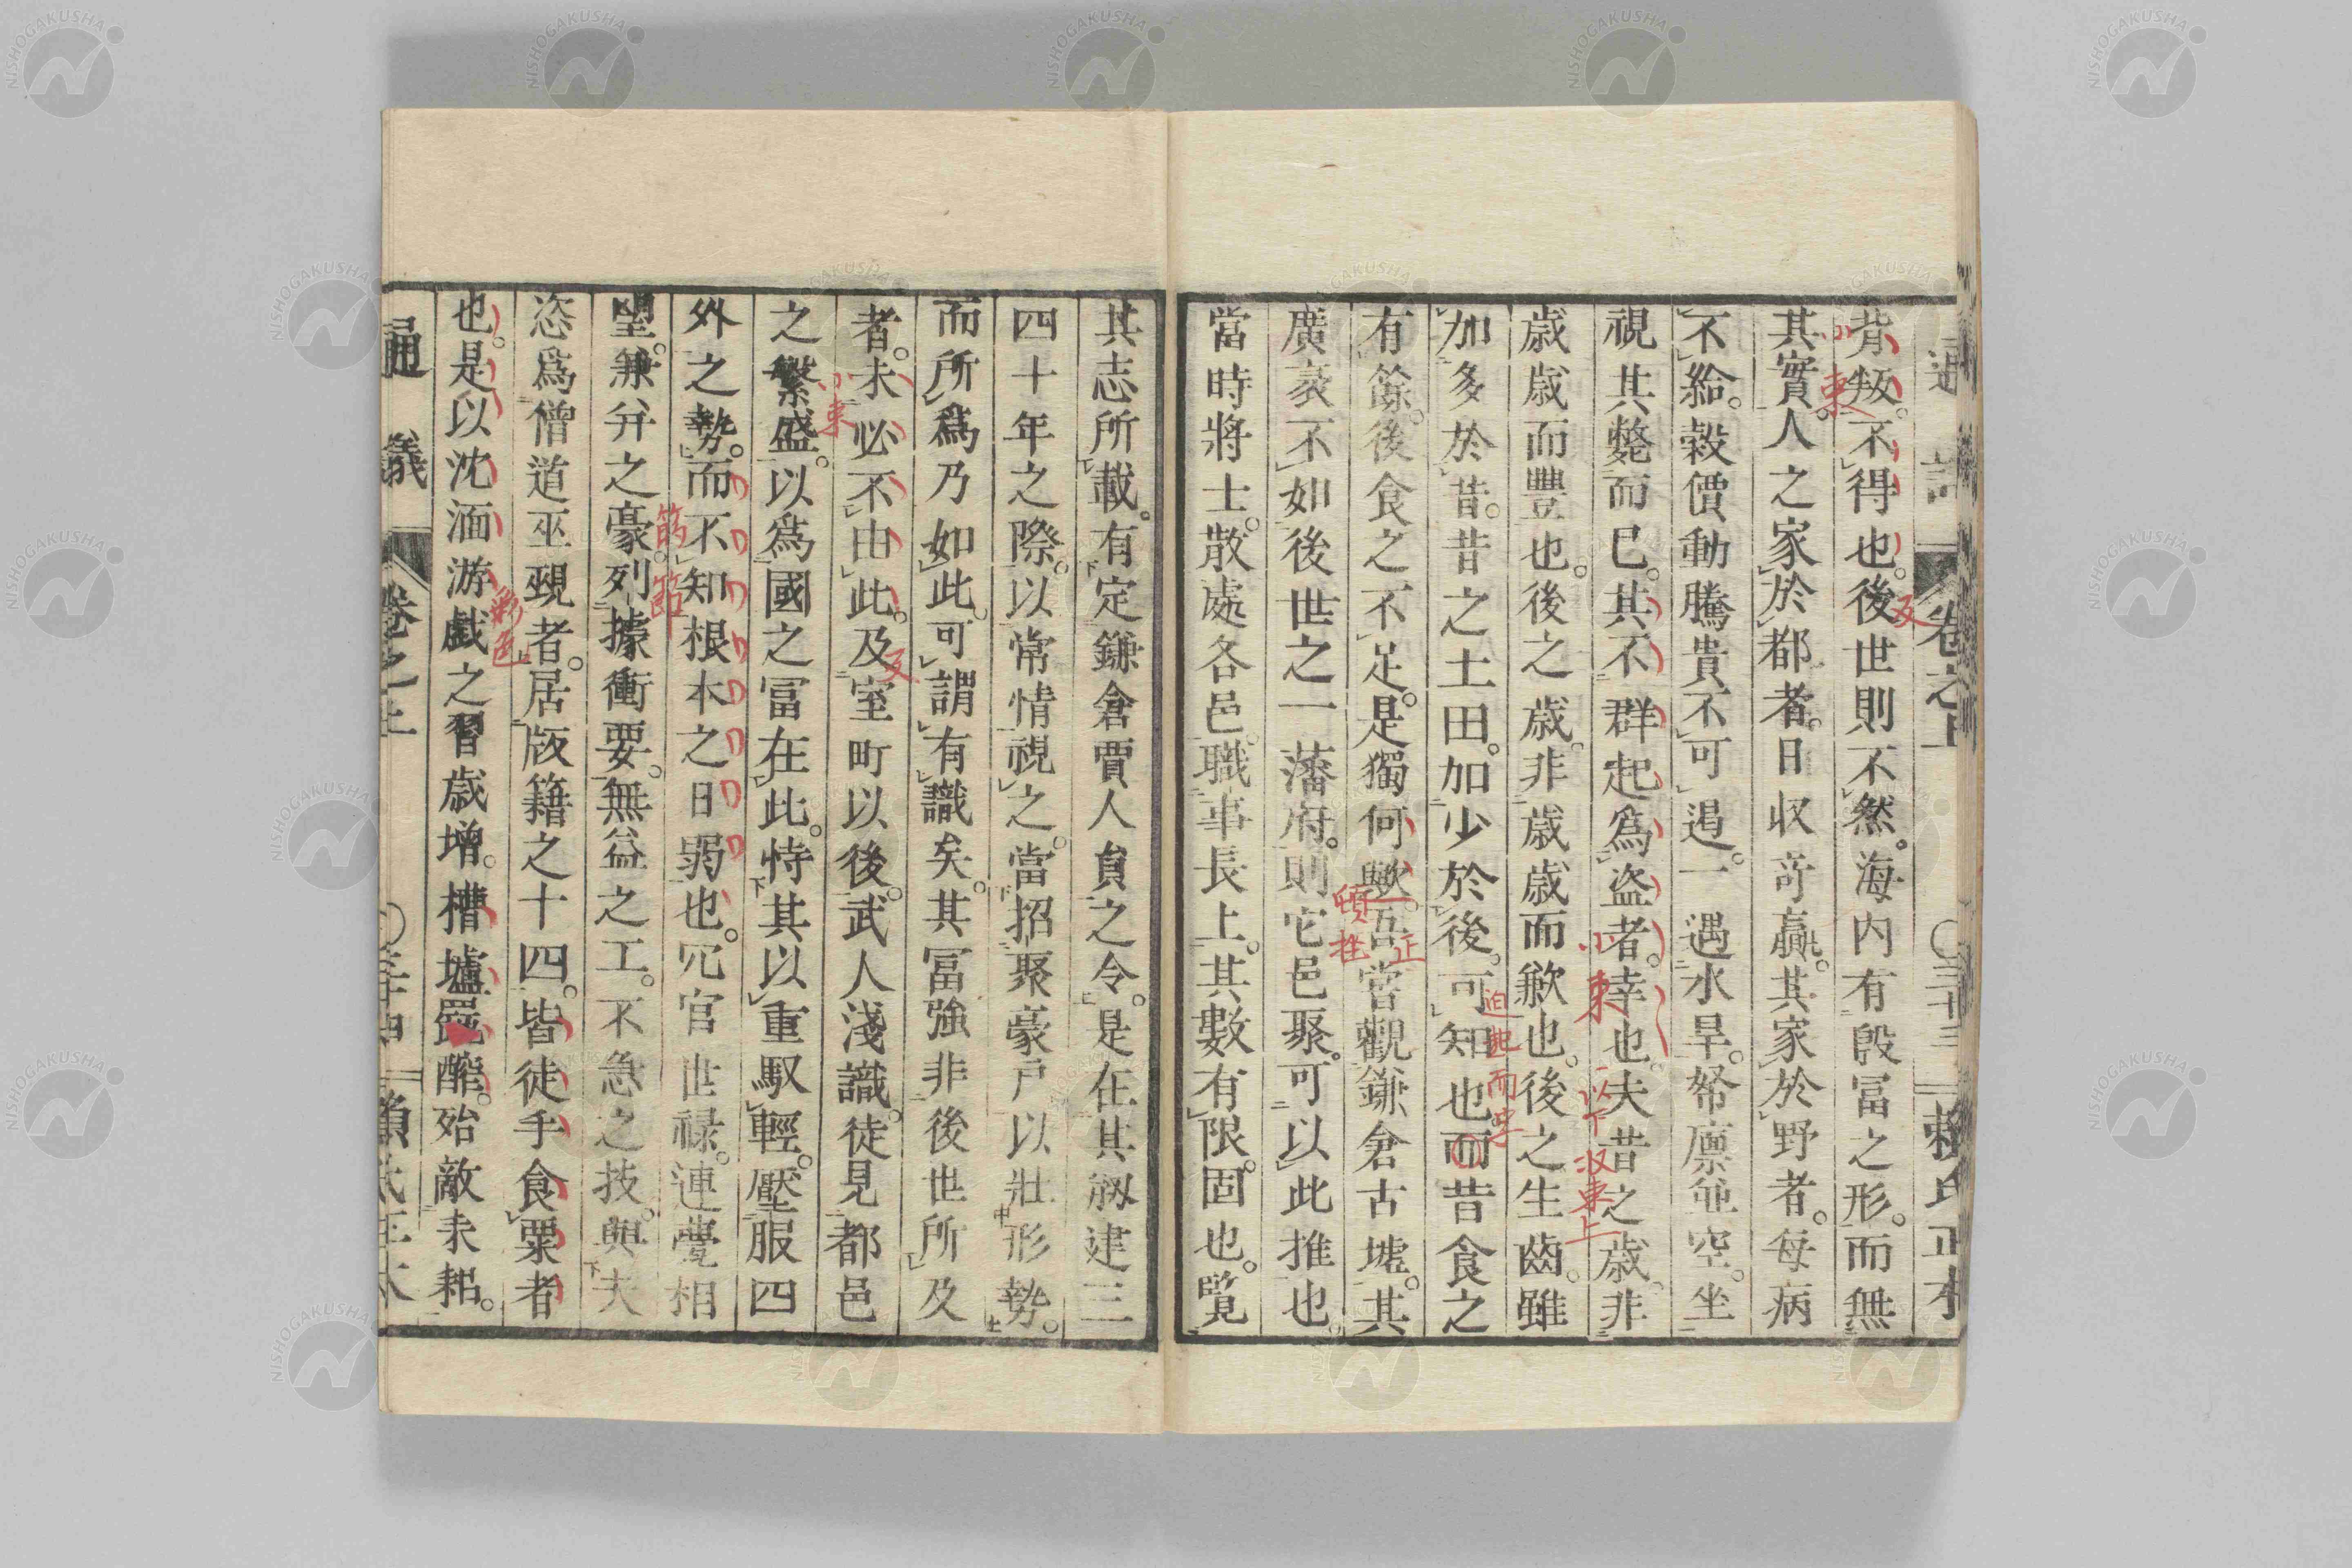 通議 卷之上 〇三十三 賴氏正本
背叛。不得也。後世則不然。海內有殷冨之形。而無
其實。人之家於都者。日収奇贏。其家於野者。每病
不給。穀價動騰貴不可遏。一遇水旱。帑廪並空。坐
視其斃而已。其不群起爲盗者。幸也。夫昔之歳。非
歳歳而豐也。後之歳。非歳歳而歉也。後之生齒。雖
加多於昔。昔之土田。加少於後。可知也而昔食之
有餘。後食之不足。是獨何歟。吾嘗觀鎌倉古墟。其
廣袤不如後世之一藩府。則它邑聚。可以此推也。
當時將士。散處各邑。職事長上。其數有限。固也。覧
其志所載。有定鎌倉賈人負之令。是在其剏建三
四十年之際。以常情視之。當招聚豪戸以壯形勢。
而所爲乃如此。可謂有識矣。其冨強非後世所及
者。未必不由此。及室町以後。武人淺識。徒見都邑
之繁盛。以爲國之冨在此。恃其以重馭輕。壓服四
外之勢。而不知根本之日弱也。冗官世祿。連甍相
望。兼并之豪。列據衝要。無益之工。不急之技。與夫
恣爲僧道巫覡者。居版籍之十四。皆徒手食粟者
也。是以沈湎游戯之習歳增。槽壚甖醡。殆敵耒耜。
通議 卷之上 〇三十四 賴氏正本
小束
反
小束
以下 汲束上
迫此而字
頓挫
正
反
小束
筋節
彩色上
NISHOGAKUSHA